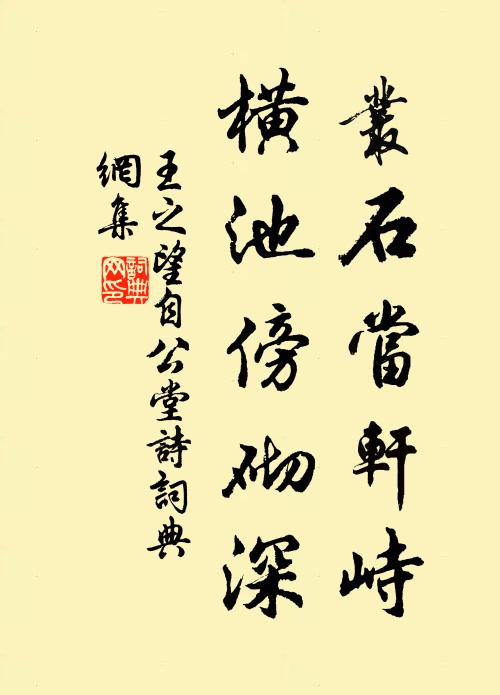 叢石當軒峙
橫池傍砌深
王之望自公堂詩詞典
網集
詞典
网印